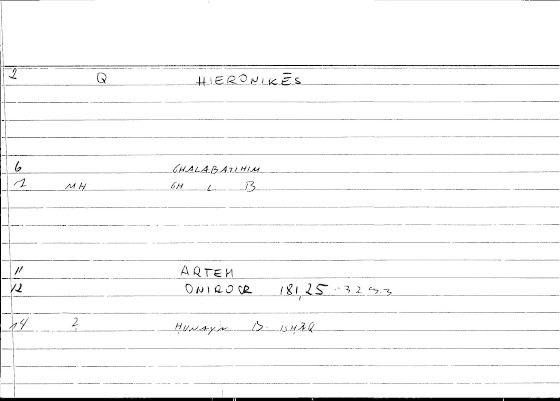 2 Q HIERONIKĒS
6 GHALABATIHIM
1 MH GH L B
11 ARTEM
12 ONIROCR 181,25
14 2 HUNAYN B